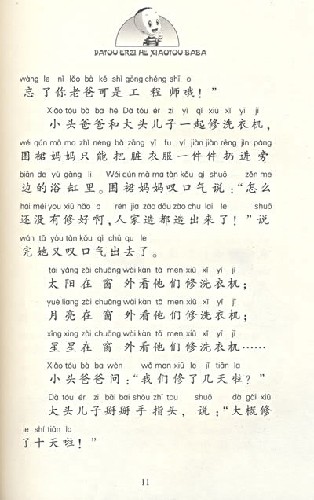 DATOU ERZI HE XIAOTOU BABA
wàng le nǐ lǎo bà kě shì gōng chéng shī ò
忘了你老爸可是工程师哦！”
Xiǎo tóu bà ba hé Dà tóu ér zi yì qǐ xiū xǐ yī jī
小头爸爸和大头儿子一起修洗衣机，
wéi qún mā ma zhǐ néng bǎ zāng yī fu yí jiàn jiàn rēng jìn páng
围裙妈妈只能把脏衣服一件件扔进旁
biān de yù gāng lǐ Wéi qún mā ma tàn kǒu qì shuō zěn me
边的浴缸里。围裙妈妈叹口气说：“怎么
hái méi yǒu xiū hǎo a rén jia zào dōu zào chū lái le shuō
还没有修好啊，人家造都造出来了！”说
wán tā yòu tàn kǒu qì chū qu le
完她又叹口气出去了。
tài yáng zài chuāng wài kàn tā men xiū xǐ yī jī
太阳在窗外看他们修洗衣机；
yuè liang zài chuāng wài kàn tā men xiū xǐ yī jī
月亮在窗外看他们修洗衣机；
xīng xing zài chuāng wài kàn tā men xiū xǐ yī jī
星星在窗外看他们修洗衣机……
Xiǎo tóu bà ba wèn wǒ men xiū le jǐ tiān la
小头爸爸问：“我们修了几天啦？”
Dà tóu ér zi bāi bai shǒu zhǐ tou shuō dà gài xiū
大头儿子掰掰手指头，说：“大概修
le shí tiān la
了十天啦！”
11